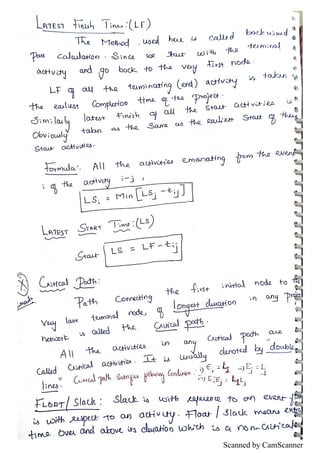 LATEST Finish Time :- (LF)
The Method used here is called backward
pass calculation. Since we start with the terminal
activity and go back to the very first node.
LF of all the terminating (end) activity is taken as
the earliest completion time of the project.
Similarly latest finish of all the start activities is
Obviously taken as the same as the earliest start of these
Start activities.
Formula:- All the activities emanating from the event
i of the activity i-j,
LSi = Min [LSj - tij]
LATEST START Time :- (LS)
Start LS = LF - tij
Critical Path:-
Path Connecting the first initial node to the
very last terminal node, of longest duration in any
network is called the Critical path.
All the activities in any Critical path are
called Critical activities. It is usually denoted by double
lines. Critical path satisfies following Condition
FLOAT / Slack : Slack is with reference to an event, float
is with respect to an activity. Float / slack means extra
time over and above its duration which is a non-Critical
Scanned by CamScanner